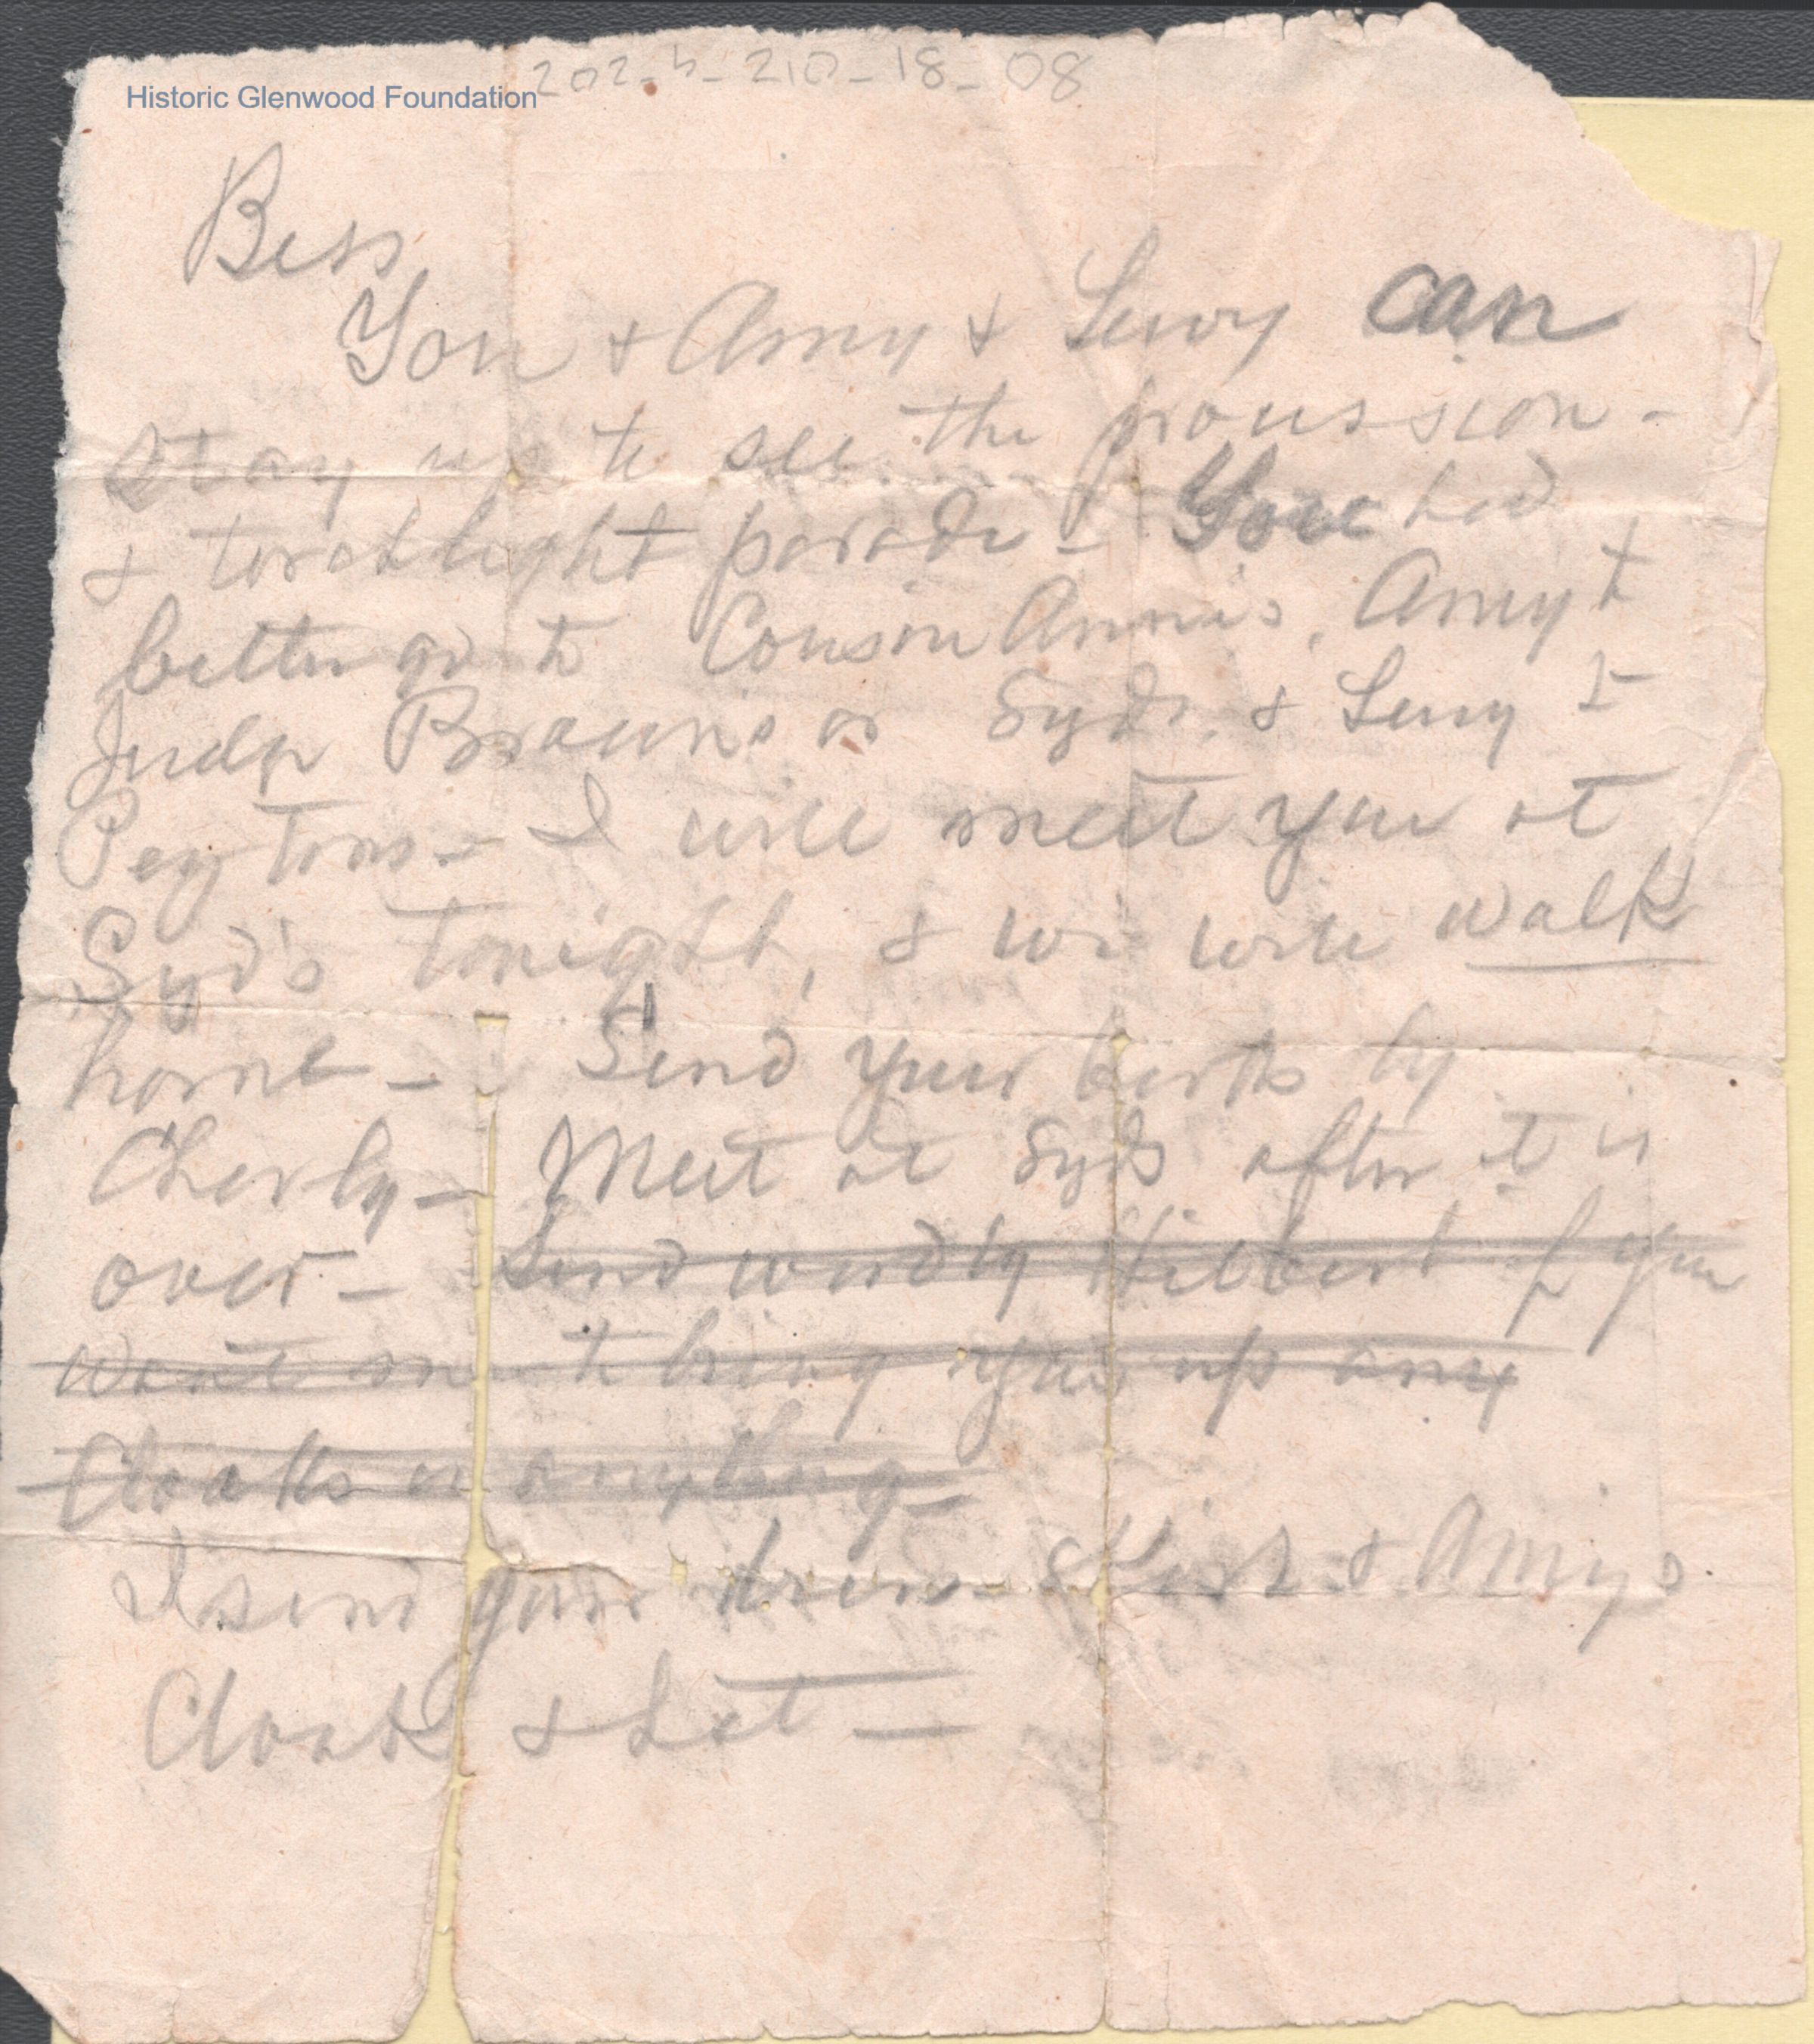 202-5-210-18-08
Historic Glenwood Foundation
Bess
You & Amy & Leroy can
stay up to see the procession -
& torchlight parade - You had
better go to Cousin Annie's, Amy to
Judge Browns or Syds. & Leroy to
Peytons - I will meet you at
Syd's tonight, & we will walk
home - Send your books by
Charly - Meet at Syds after it is
over - Send word by Hilbert if you
want me to bring you up any
Cloaks or anything -
I send your dress skirt & Amys
Cloak & hat -